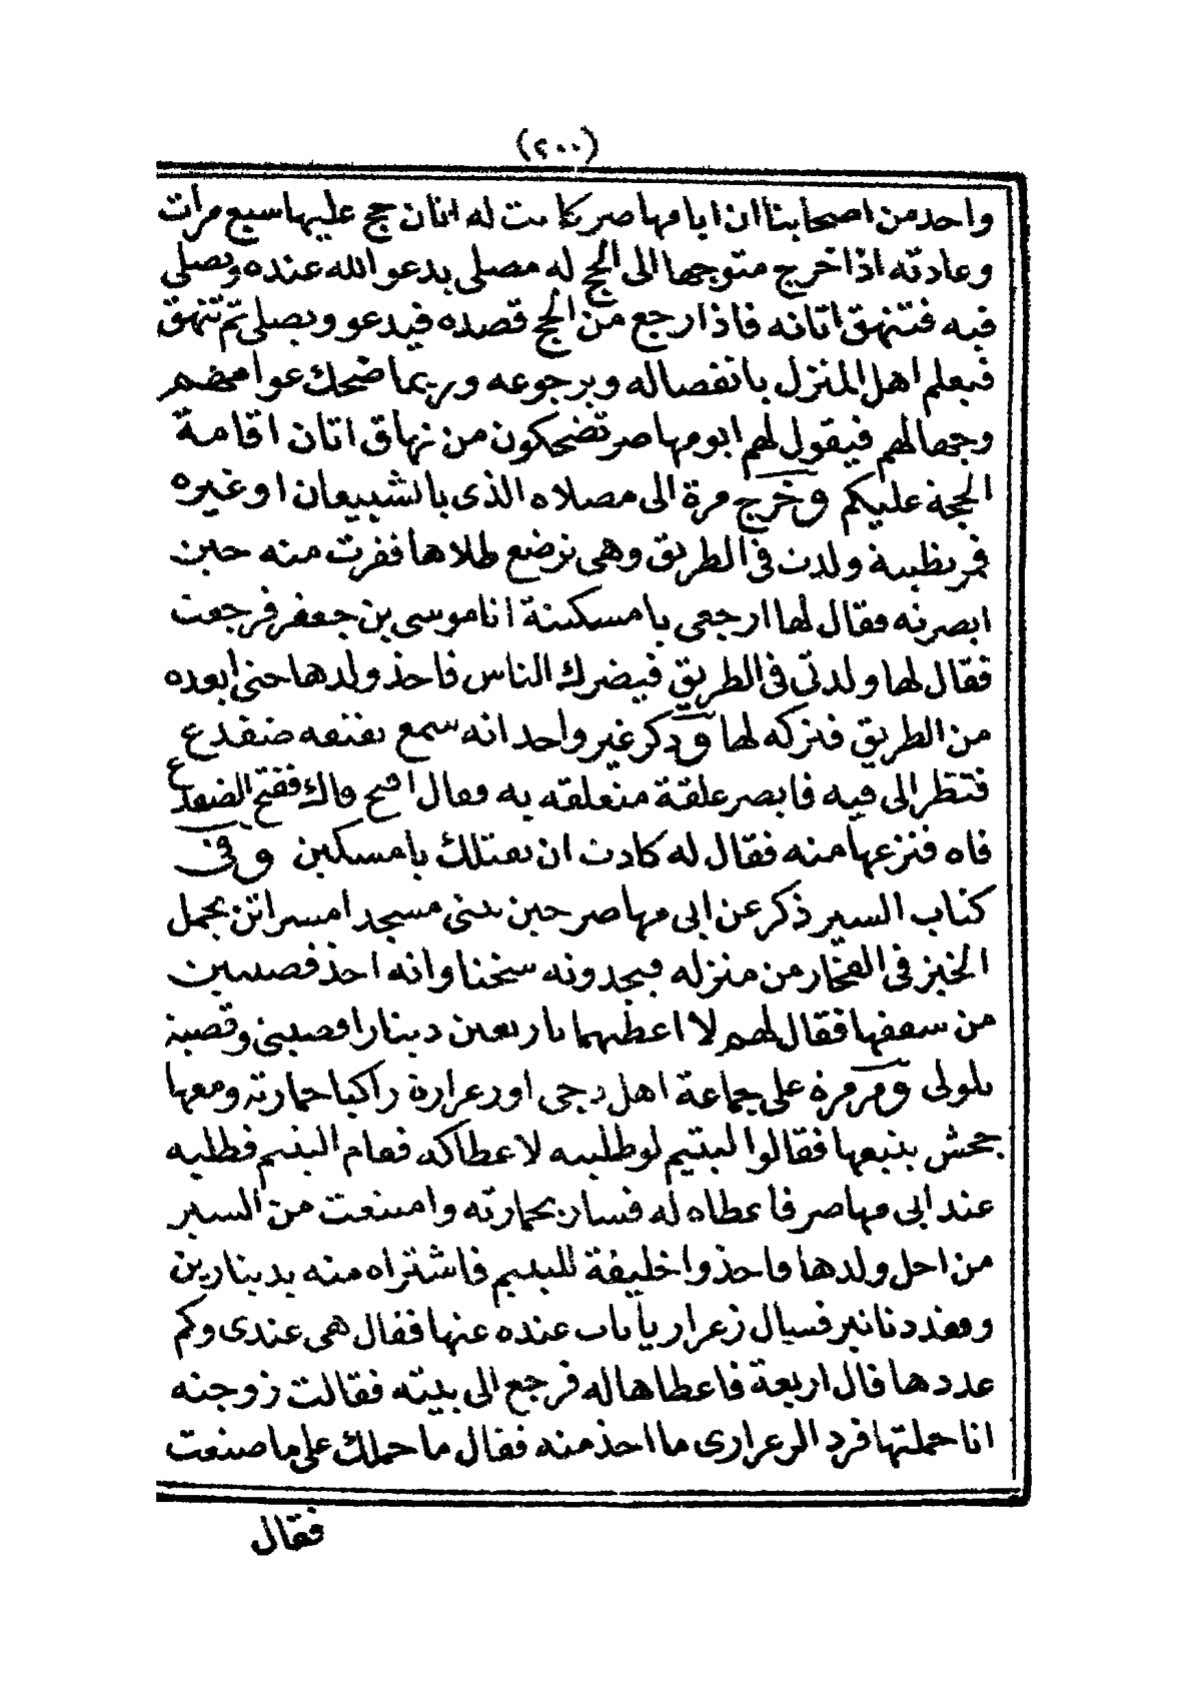 (٢٠٠)
واحد من اصحابنا ان ابا مهاصر كانت له اتان حج عليها سبع مرات
وعادته اذا خرج متوجها الى الحج له مصلى يدعو الله عنده ويصلي
فيه فتنهق اتانه فاذا رجع من الحج قصده فيدعو ويصلي ثم تنهق
فيعلم اهل المنزل بانفصاله وبرجوعه وربما ضحك عوامهم
وجهالهم فيقول لهم ابو مهاصر تضحكون من نهاق اتان اقامة
الحجة عليكم وخرج مرة الى مصلاه الذي بالشبيعان او غيره
فمر بظبية ولدت في الطريق وهي ترضع طلاها ففرت منه حين
ابصرته فقال لها ارجعي يا مسكينة انا موسى بن جعفر فرجعت
فقال لها ولدتي في الطريق فيضرك الناس فاخذ ولدها حتى ابعده
من الطريق فتركه لها وذكر غير واحد انه سمع نقنقه ضفدع
فنظر الى فيه فابصر علقة متعلقه به فقال افتح فاك ففتح الضفدع
فاه فنزعها منه فقال له كادت ان تقتلك يا مسكين وفي
كتاب السير ذكر عن ابي مهاصر حين بنى مسجد امسراتن يحمل
الخبز في الفخار من منزله فيجدونه سخنا وانه اخذ قصبتين
من سعفها فقال لهم لا اعطيهما باربعين دينارا قصبتي وقصبة
بلولى ومر مرة على جماعة اهل دجى اورعرارة راكبا حمارته ومعها
جحش يتبعها فقالوا ليتيم لو طلبته لاعطاكه فقام اليتيم فطلبه
عند ابي مهاصر فاعطاه له فسار بحمارته وامتنعت من السير
من اجل ولدها فاخذوا خليفة لليتيم فاشتراه منه بدينارين
وفقد دنانير فسال زعراريا بات عنده عنها فقال هي عندى وكم
عددها قال اربعة فاعطاها له فرجع الى بيته فقالت زوجته
انا حملتها فرد الزعرارى ما اخذ منه فقال ما حملك على ما صنعت
فقال